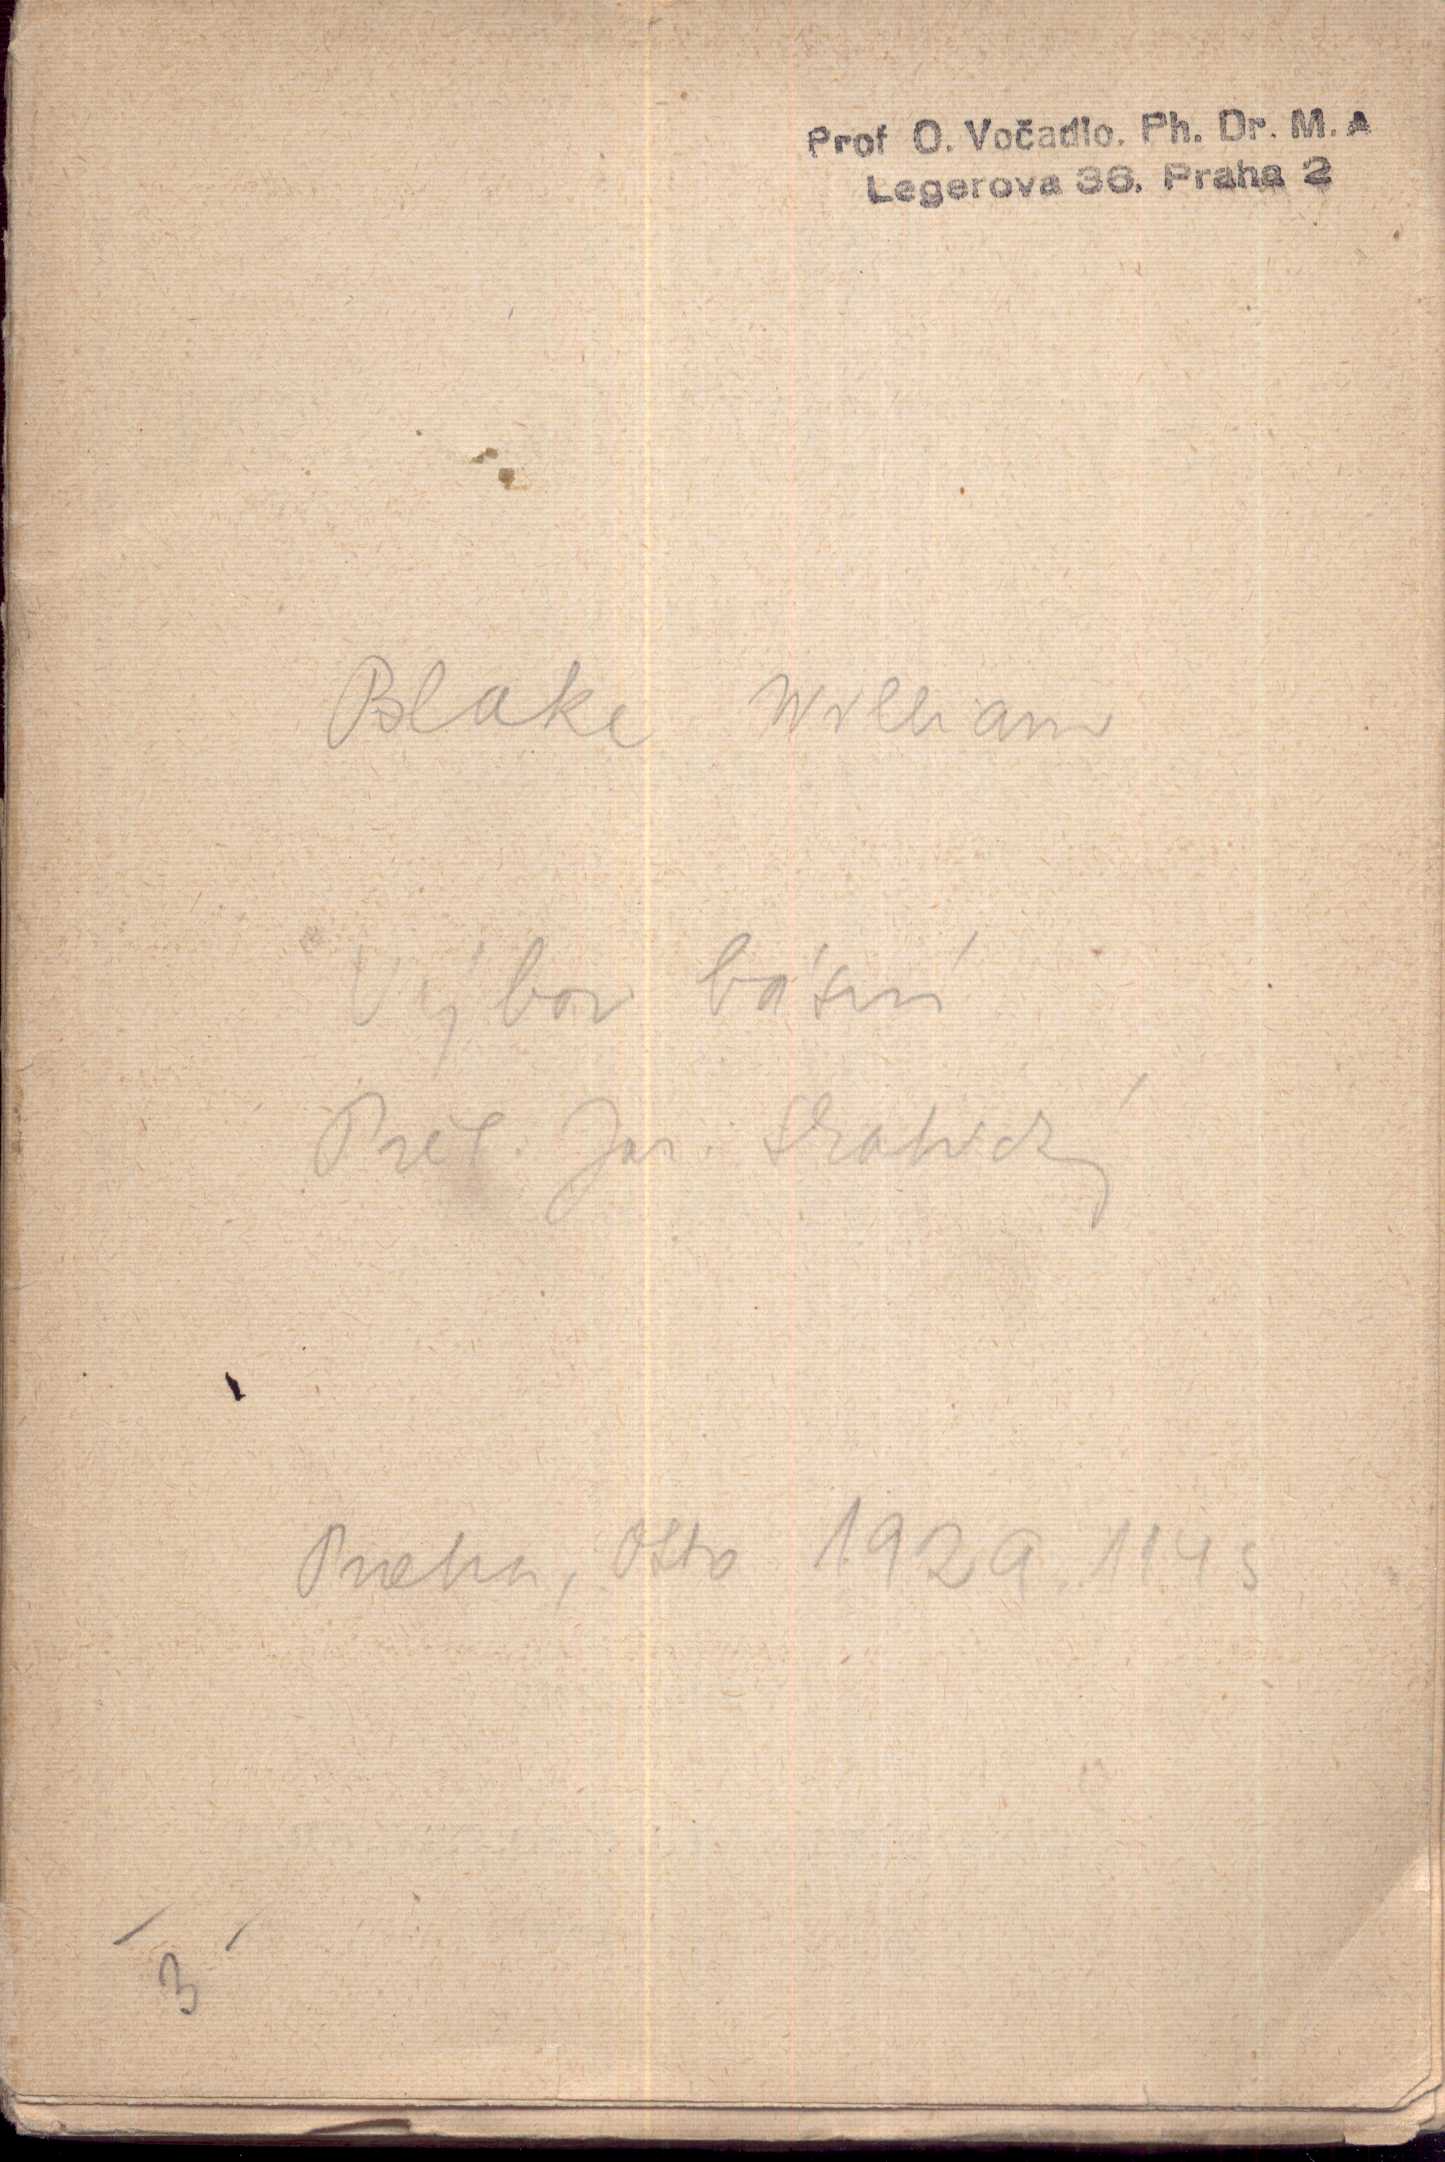 Prof O. Vočadlo. Ph. Dr. M. A
Legerova 36. Praha 2
Blake William
Výbor básní
Přel. Jar. Skalický
Praha, Otto 1929.
3